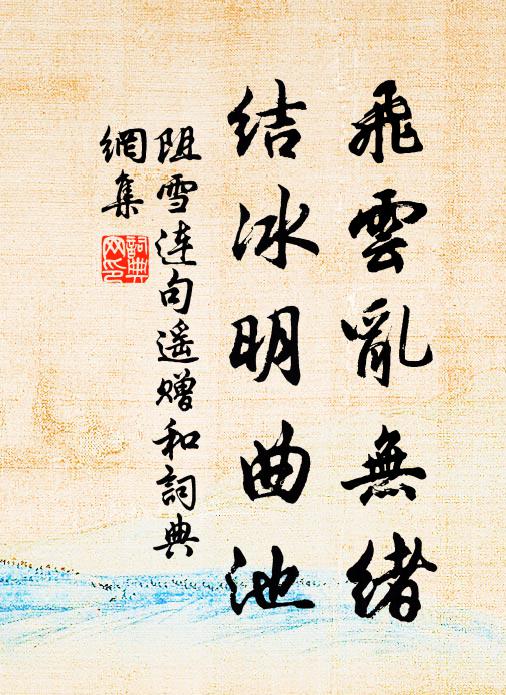 飛雲亂無緒
結冰明曲池
阻雪连句遙贈和詞典
網集
詞典
网印